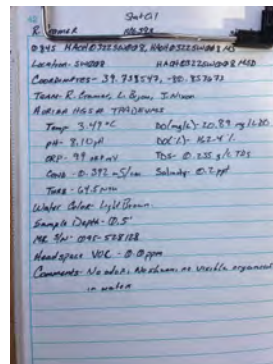 Statoil
R. Cramer
0845 HAOH03225W008, HAOH03225W008 MS
Location: SW008 HAOH03225W008 MSD
Coordinates - 39.738547, -80.857672
Team: R. Cramer, L. , J. Nixon
Horiba
Temp: 3.47 °C DO(mg/L)- 20.89 mg/L DO
pH- 8.10 pH DO(%)- 162.4 %
ORP- 99 ORPmV TDS- 0.255 g/L TDS
Cond - 0.392 mS/cm Salinity- 0.2 ppt
Turb- 64.5 NTU
Water Color: Light Brown
Sample Depth- 0.5'
S/N- 0095-528128
Headspace VOC - 0.0 ppm
Comments: No odor, No sheen, no visible organics
in water